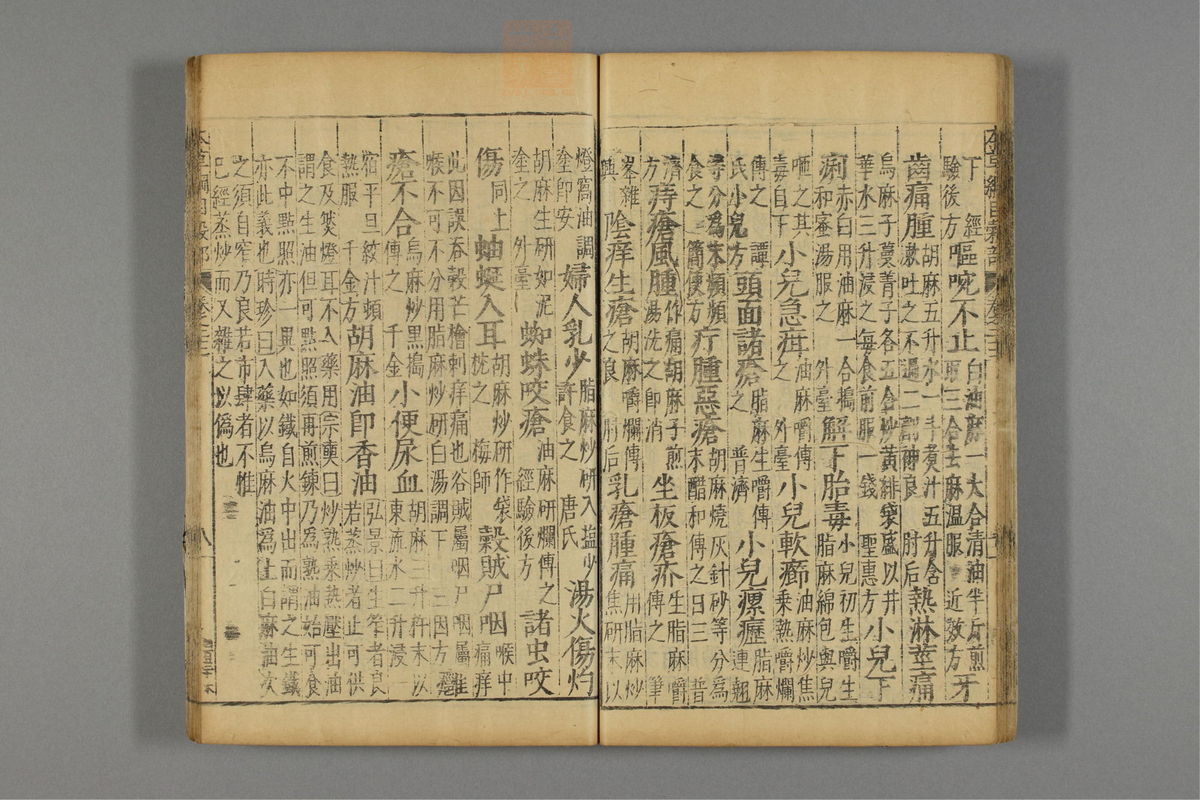 下 經
驗後方
嘔啘不止
白油麻一大合清油半斤煎
取三合去麻溫服 近效方
牙
齒痛腫
胡麻五升水一斗煮汁五升含
漱吐之不過二劑神良 肘后
熱淋莖痛
烏麻子蔓菁子各五合炒黃緋袋盛以井
華水三升浸之每食前服一錢 聖惠方
小兒下
痢
赤白用油麻一合搗
和蜜湯服之 外臺
解下胎毒
小兒初生嚼生
脂麻綿包與兒
咂之其
毒自下
小兒急疳
油麻嚼傅
之 外臺
小兒軟癤
油麻炒焦
乘熱嚼爛
傅之 譚
氏小兒方
頭面諸瘡
脂麻生嚼傅
之 普濟
小兒瘰癧
脂麻
連翹
等分爲末頻頻
食之 簡便方
疔腫惡瘡
胡麻燒灰針砂等分爲
末醋和傅之日三 普
濟
方
痔瘡風腫
作痛胡麻子煎
湯洗之即消
坐板瘡疥
生脂麻嚼
傅之 筆
峯雜
興
陰痒生瘡
胡麻嚼爛傅
之良 肘后
乳瘡腫痛
用脂麻炒
焦研末以
燈窩油調
塗即安
婦人乳少
脂麻炒研入塩少
許食之 唐氏
湯火傷灼
胡麻生研如泥
塗之 外臺
蜘蛛咬瘡
油麻研爛傅之
經驗後方
諸虫咬
傷
同上
蚰蜒入耳
胡麻炒研作袋
枕之 梅師
穀賊尸咽
喉中
痛痒
此因誤吞穀芒槍刺痒痛也谷賊屬咽尸咽屬
喉不可不分用脂麻炒研白湯調下 三因方
癰
瘡不合
烏麻炒黑搗
傅之 千金
小便尿血
胡麻三升杵末以
東流水二升浸一
宿平旦絞汁頓
熱服 千金方
胡麻油即香油
弘景曰生笮者良
若蒸炒者止可供
食及燃燈耳不入藥用宗奭曰炒熟乘熱壓出油
謂之生油但可點照須再煎鍊乃爲熟油始可食
不中點照亦一異也如鐵自火中出而謂之生鐵
亦此義也時珍曰入藥以烏麻油爲上白麻油次
之須自窄乃良若市肆者不惟
已經蒸炒而又雜之以僞也
本草綱目穀部
八